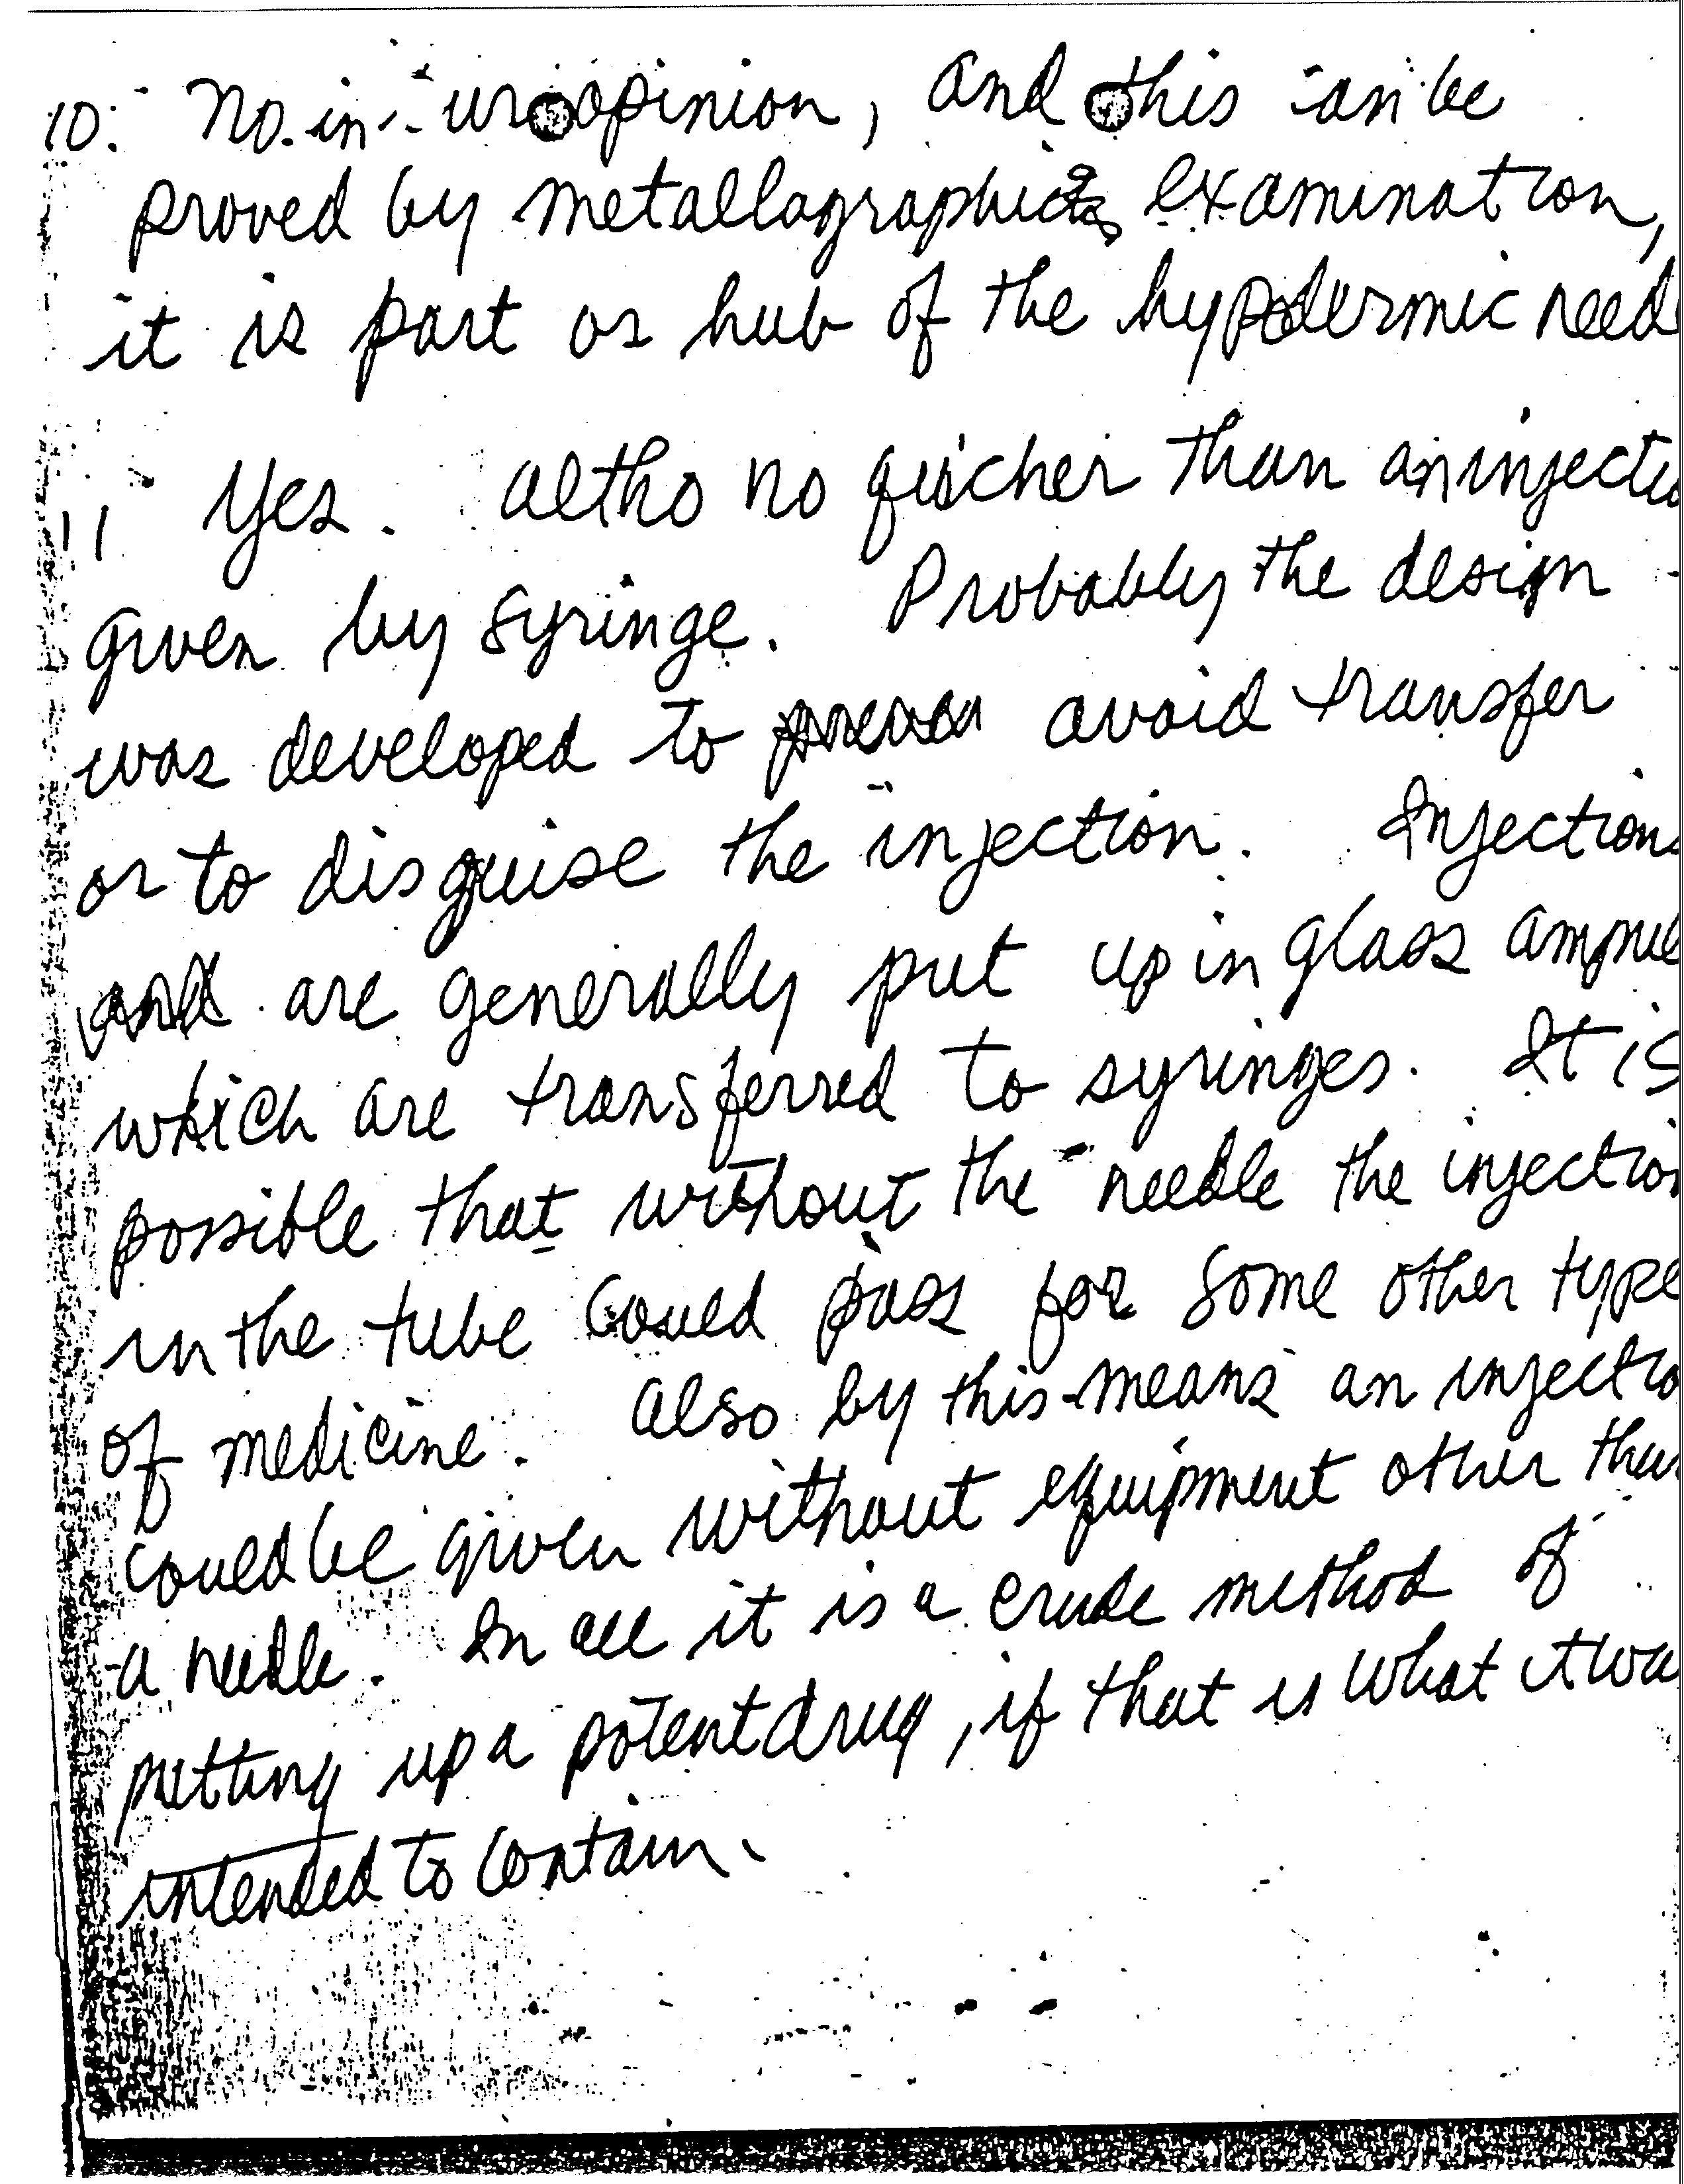 10. No. in ur opinion, and this can be
proved by metallographic examination,
it is part or hub of the hypodermic need
11 Yes. altho no quicher than an injectio
given by syringe. Probably the design
was developed to avoid transfer
or to disguise the injection. Injections
and are generally put up in glass ampule
which are transferred to syringes. It is
possible that without the needle the injection
in the tube could pass for some other type
of medicine. Also by this means an injectio
could be given without equipment other than
a needle. In all it is a crude method of
putting up a potent drug, if that is what it wa
intended to contain.